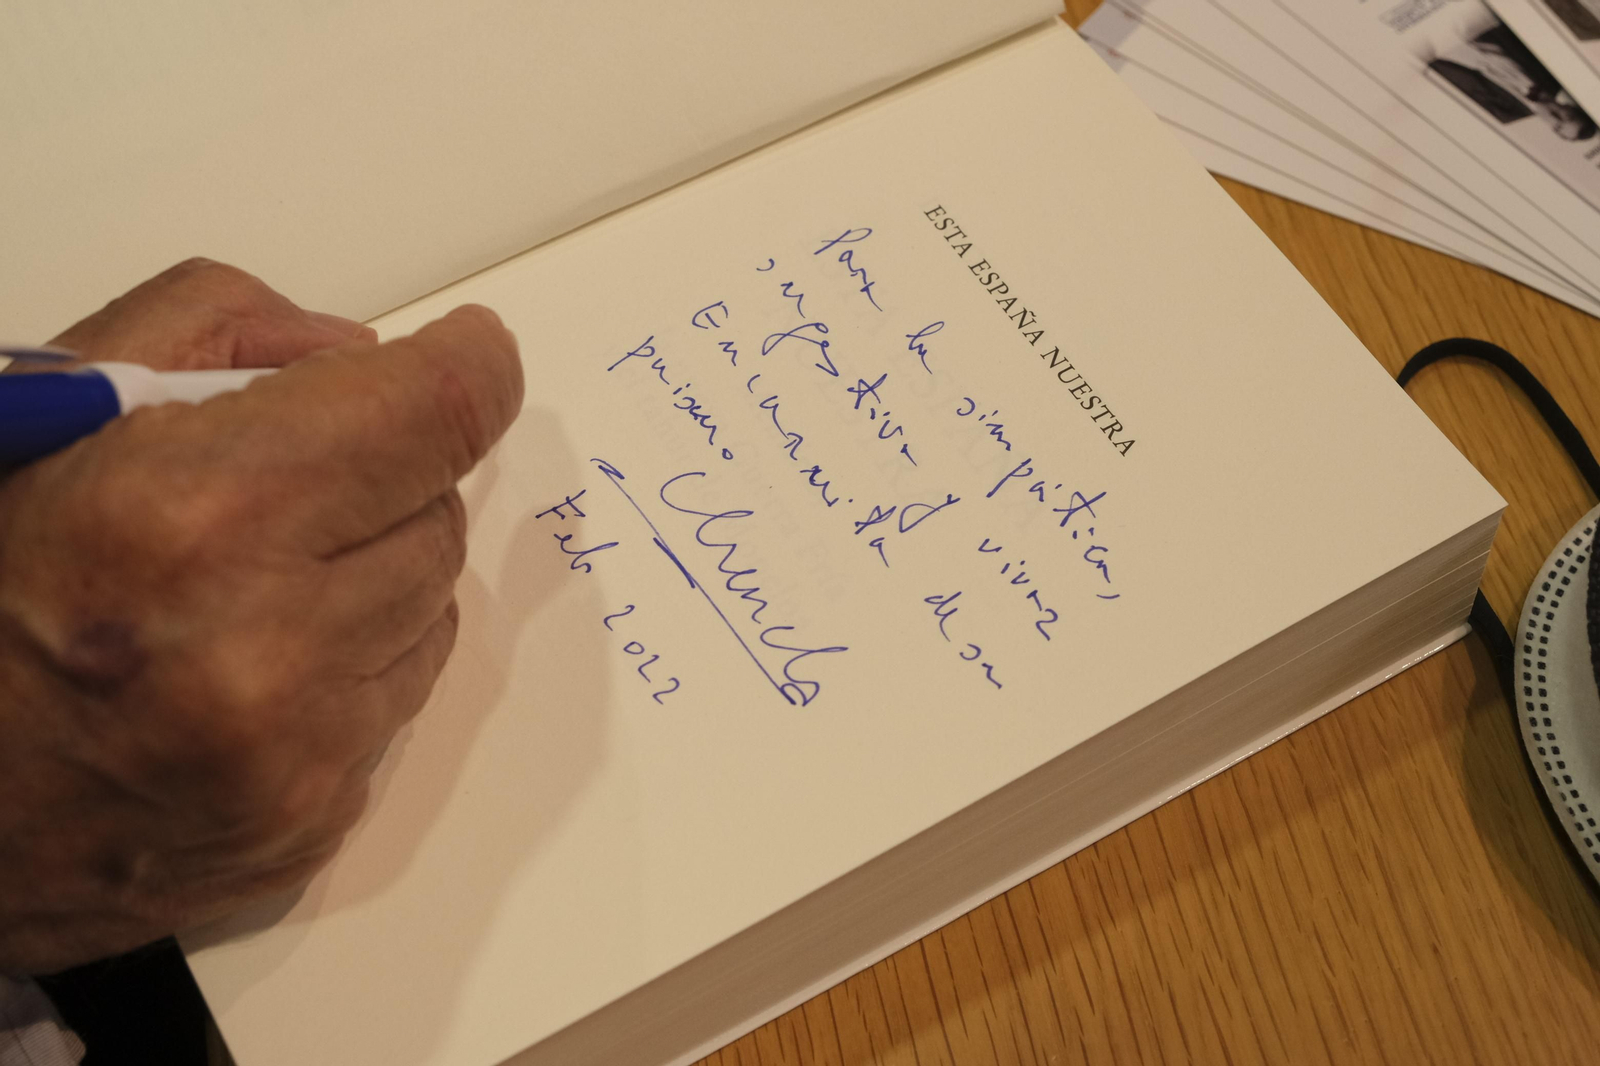 ESTA ESPAÑA NUESTRA
Para la simpática,
sugestiva y vivaz
Encarnita de su
paisano
Feb 2022